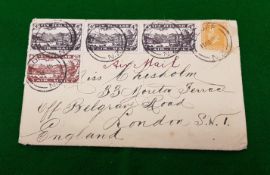 NEW ZEALAND NEW ZEALAND NEW ZEALAND
Air Mail
Miss Chisholm
33 Moreton Terrace
Off Belgrave Road
London S.W.1.
England